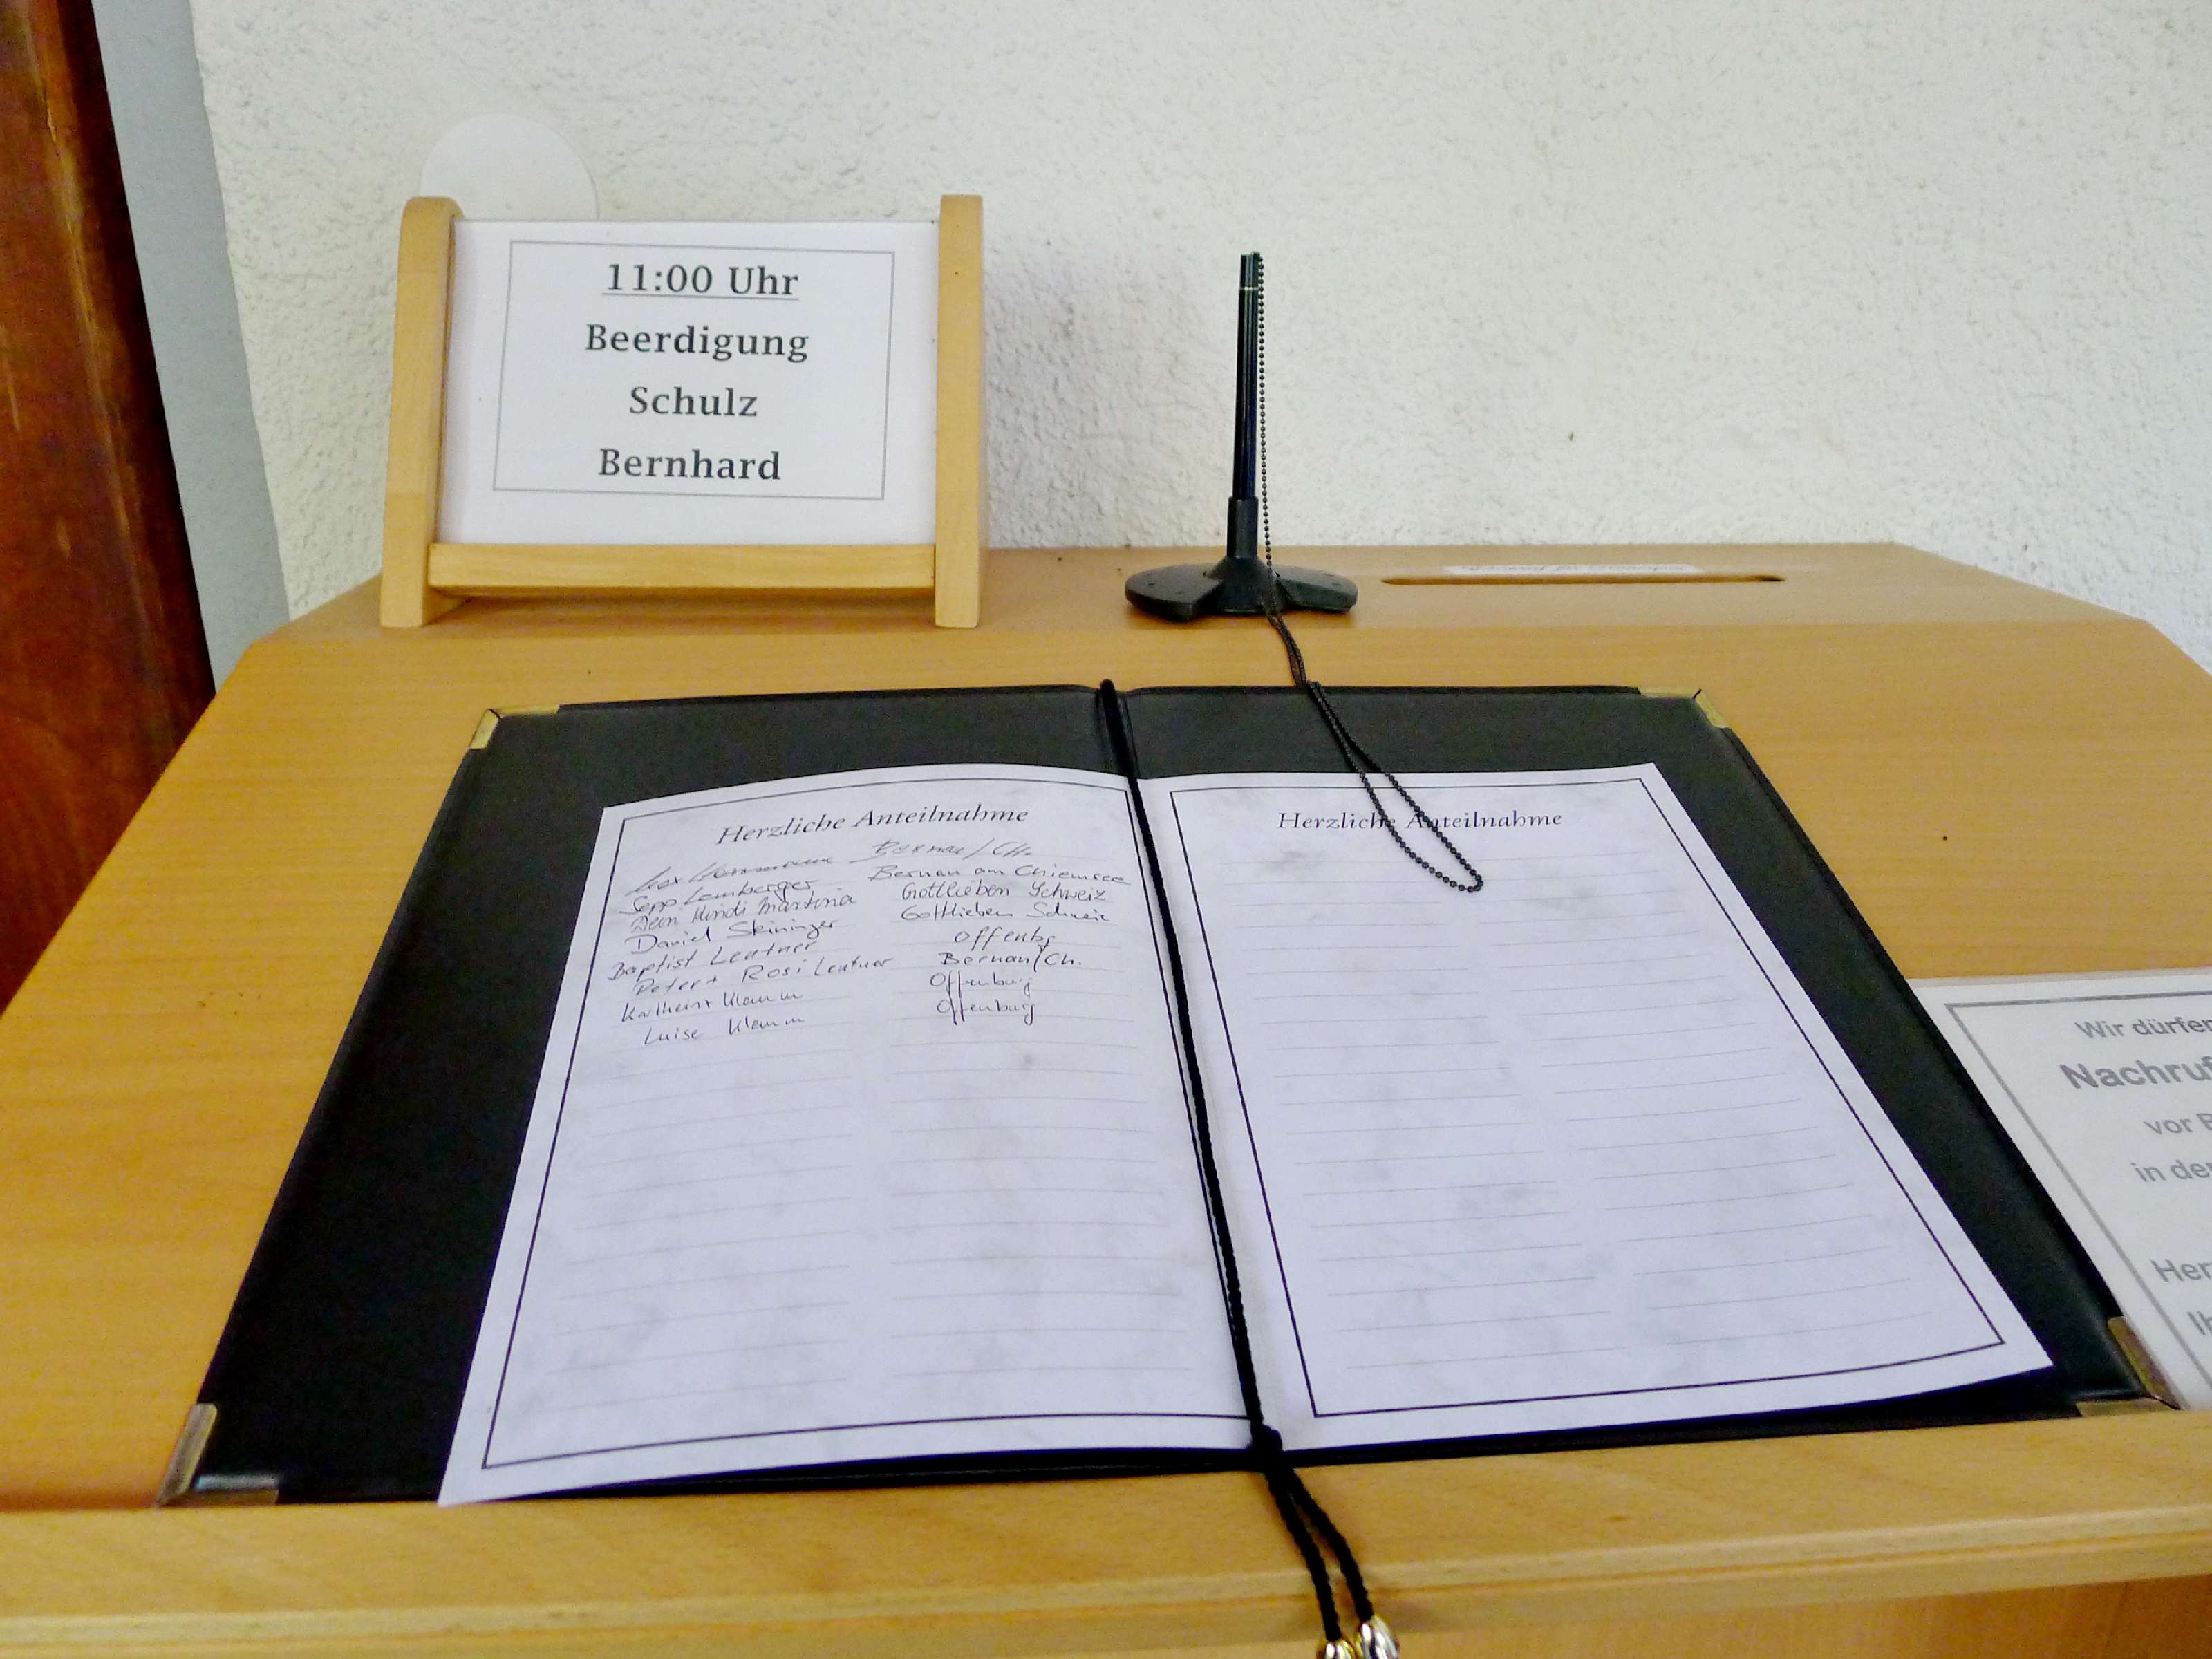 11:00 Uhr
Beerdigung
Schulz
Bernhard
Herzliche Anteilnahme
Bernau/CH.
Sepp Lamberger Bernau am Chiemsee
Martina Gottlieben Schweiz
Daniel Steininger Gottlieben Schweiz
Baptist Leutner Offenbg
Peter + Rosi Leutner Bernau/Ch.
Klamm Offenburg
Luise Klamm Offenburg
Herzliche Anteilnahme
Wir dürfen
Nachruf
vor